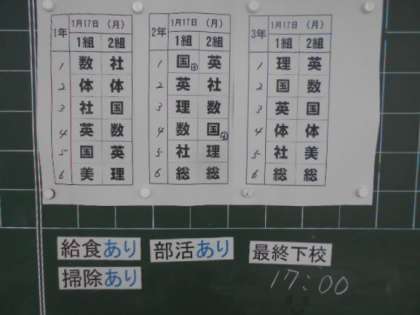 1年 1月17日 (月)
1組 2組
1 数 社
2 体 体
3 社 国
4 英 数
5 国 英
6 美 理
2年 1月17日 (月)
1組 2組
1 国 英
2 英 社
3 理 数
4 数 国
5 社 理
6 総 総
3年 1月17日 (月)
1組 2組
1 理 英
2 国 数
3 英 国
4 体 体
5 社 美
6 総 総
給食あり 部活あり 最終下校
掃除あり 17:00